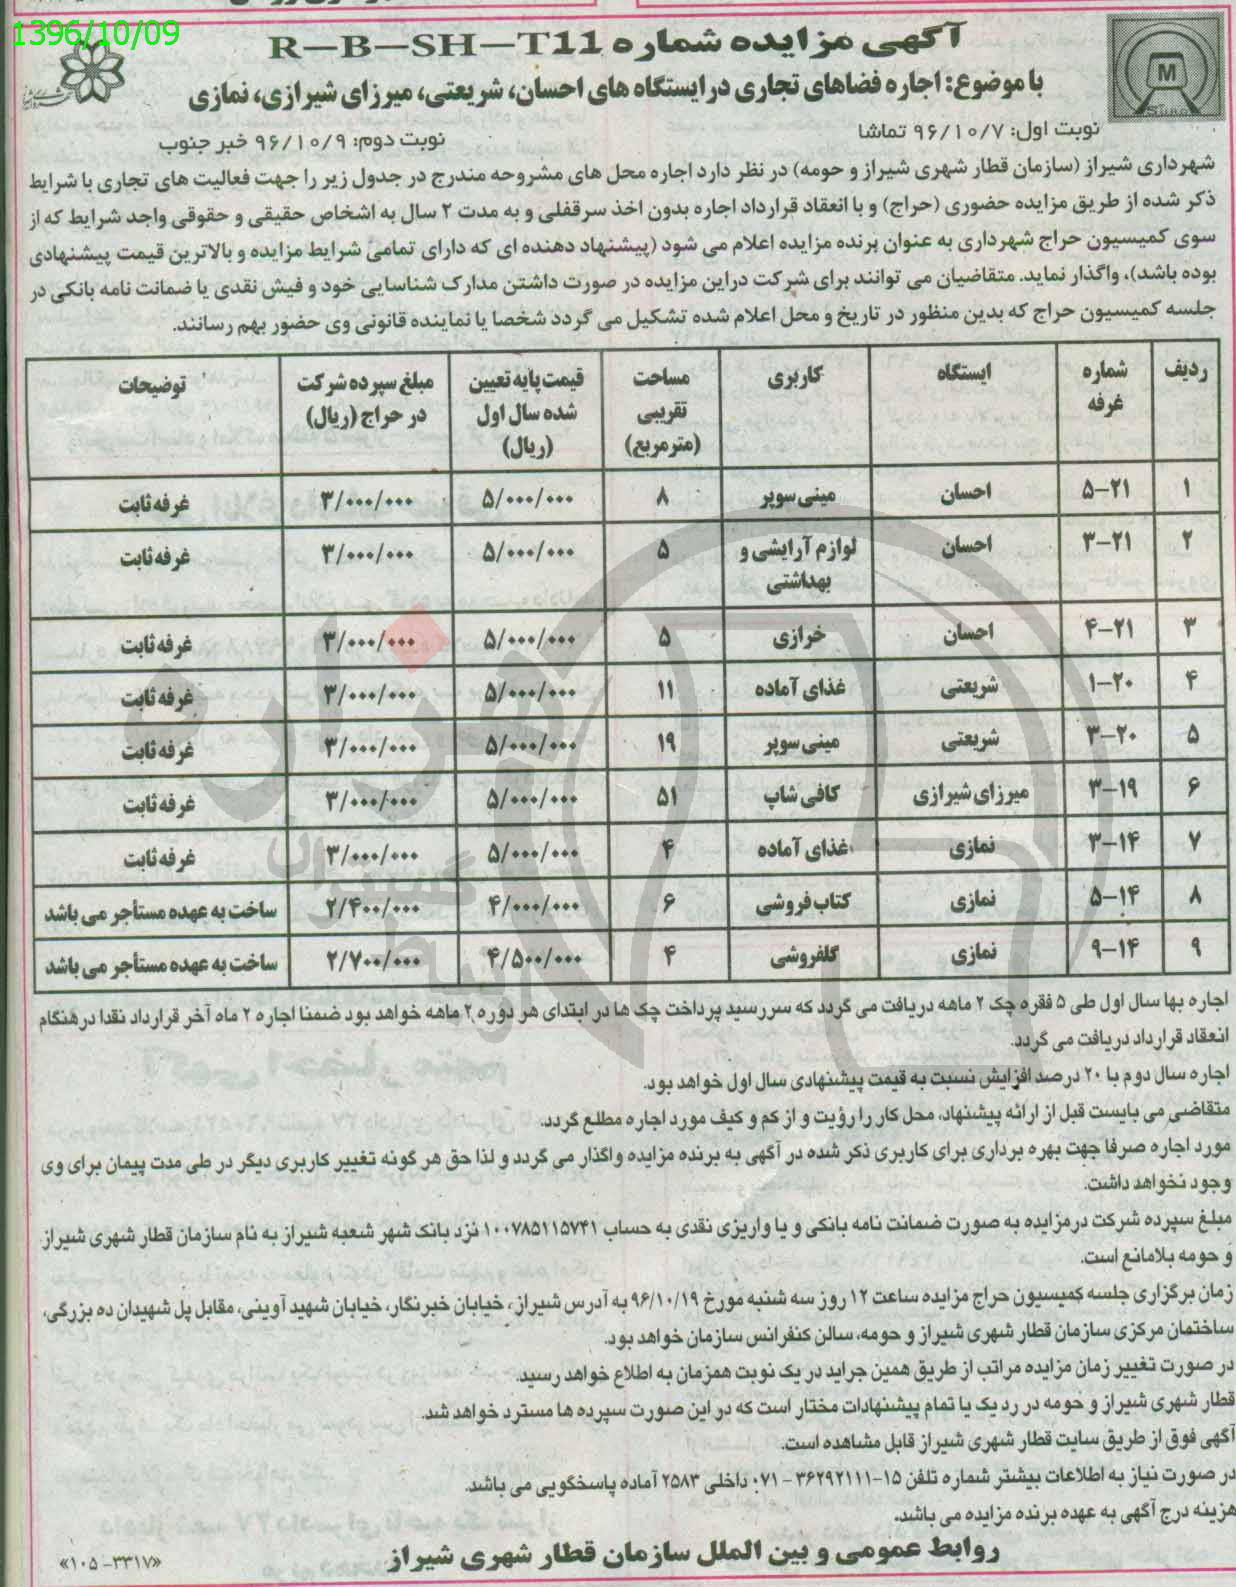 1396/10/09
آگهی مزایده شماره R-B-SH-T11
با موضوع: اجاره فضاهای تجاری در ایستگاه های احسان، شریعتی، میرزای شیرازی، نمازی
نوبت اول: ۹۶/۱۰/۷ تماشا
نوبت دوم: ۹۶/۱۰/۹ خبر جنوب
شهرداری شیراز (سازمان قطار شهری شیراز و حومه) در نظر دارد اجاره محل های مشروحه مندرج در جدول زیر را جهت فعالیت های تجاری با شرایط
ذکر شده از طریق مزایده حضوری (حراج) و با انعقاد قرارداد اجاره بدون اخذ سرقفلی و به مدت ۲ سال به اشخاص حقیقی و حقوقی واجد شرایط که از
سوی کمیسیون حراج شهرداری به عنوان برنده مزایده اعلام می شود (پیشنهاد دهنده ای که دارای تمامی شرایط مزایده و بالاترین قیمت پیشنهادی
بوده باشد)، واگذار نماید. متقاضیان می توانند برای شرکت دراین مزایده در صورت داشتن مدارک شناسایی خود و فیش نقدی یا ضمانت نامه بانکی در
جلسه کمیسیون حراج که بدین منظور در تاریخ و محل اعلام شده تشکیل می گردد شخصا یا نماینده قانونی وی حضور بهم رسانند.
ردیف شماره غرفه ایستگاه کاربری مساحت تقریبی (مترمربع) قیمت پایه تعیین شده سال اول (ریال) مبلغ سپرده شرکت در حراج (ریال) توضیحات
۱ ۵-۲۱ احسان مینی سوپر ۸ ۵/۰۰۰/۰۰۰ ۳/۰۰۰/۰۰۰ غرفه ثابت
۲ ۳-۲۱ احسان لوازم آرایشی و بهداشتی ۵ ۵/۰۰۰/۰۰۰ ۳/۰۰۰/۰۰۰ غرفه ثابت
۳ ۴-۲۱ احسان خرازی ۵ ۵/۰۰۰/۰۰۰ ۳/۰۰۰/۰۰۰ غرفه ثابت
۴ ۱-۲۰ شریعتی غذای آماده ۱۱ ۵/۰۰۰/۰۰۰ ۳/۰۰۰/۰۰۰ غرفه ثابت
۵ ۳-۲۰ شریعتی مینی سوپر ۱۹ ۵/۰۰۰/۰۰۰ ۳/۰۰۰/۰۰۰ غرفه ثابت
۶ ۳-۱۹ میرزای شیرازی کافی شاپ ۵۱ ۵/۰۰۰/۰۰۰ ۳/۰۰۰/۰۰۰ غرفه ثابت
۷ ۳-۱۴ نمازی غذای آماده ۴ ۵/۰۰۰/۰۰۰ ۳/۰۰۰/۰۰۰ غرفه ثابت
۸ ۵-۱۴ نمازی کتاب فروشی ۶ ۴/۰۰۰/۰۰۰ ۲/۴۰۰/۰۰۰ ساخت به عهده مستأجر می باشد
۹ ۹-۱۴ نمازی گلفروشی ۴ ۴/۵۰۰/۰۰۰ ۲/۷۰۰/۰۰۰ ساخت به عهده مستأجر می باشد
اجاره بها سال اول طی ۵ فقره چک ۲ ماهه دریافت می گردد که سررسید پرداخت چک ها در ابتدای هر دوره ۲ ماهه خواهد بود ضمنا اجاره ۲ ماه آخر قرارداد نقدا درهنگام
انعقاد قرارداد دریافت می گردد.
اجاره سال دوم با ۲۰ درصد افزایش نسبت به قیمت پیشنهادی سال اول خواهد بود.
متقاضی می بایست قبل از ارائه پیشنهاد، محل کار را رؤیت و از کم و کیف مورد اجاره مطلع گردد.
مورد اجاره صرفا جهت بهره برداری برای کاربری ذکر شده در آگهی به برنده مزایده واگذار می گردد و لذا حق هر گونه تغییر کاربری دیگر در طی مدت پیمان برای وی
وجود نخواهد داشت.
مبلغ سپرده شرکت درمزایده به صورت ضمانت نامه بانکی و یا واریزی نقدی به حساب ۱۰۰۷۸۵۱۱۵۷۴۱ نزد بانک شهر شعبه شیراز به نام سازمان قطار شهری شیراز
و حومه بلامانع است.
زمان برگزاری جلسه کمیسیون حراج مزایده ساعت ۱۲ روز سه شنبه مورخ ۹۶/۱۰/۱۹ به آدرس شیراز، خیابان خبرنگار، خیابان شهید آوینی، مقابل پل شهیدان ده بزرگی،
ساختمان مرکزی سازمان قطار شهری شیراز و حومه، سالن کنفرانس سازمان خواهد بود.
در صورت تغییر زمان مزایده مراتب از طریق همین جراید در یک نوبت همزمان به اطلاع خواهد رسید.
قطار شهری شیراز و حومه در رد یک یا تمام پیشنهادات مختار است که در این صورت سپرده ها مسترد خواهد شد.
آگهی فوق از طریق سایت قطار شهری شیراز قابل مشاهده است.
در صورت نیاز به اطلاعات بیشتر شماره تلفن ۱۵-۳۶۲۹۲۱۱۱-۰۷۱ داخلی ۲۵۸۳ آماده پاسخگویی می باشد.
هزینه درج آگهی به عهده برنده مزایده می باشد.
روابط عمومی و بین الملل سازمان قطار شهری شیراز
«۱۰۵-۳۳۱۷»